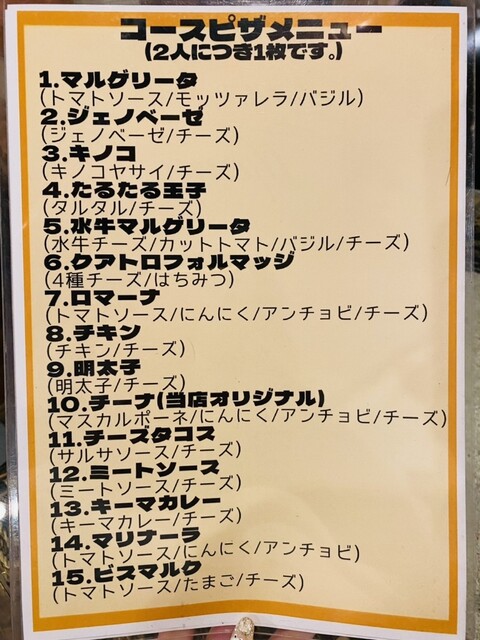 コースピザメニュー
(2人につき1枚です。)
1.マルグリータ
(トマトソース/モッツァレラ/バジル)
2.ジェノベーゼ
(ジェノベーゼ/チーズ)
3.キノコ
(キノコヤサイ/チーズ)
4.たるたる玉子
(タルタル/チーズ)
5.水牛マルグリータ
(水牛チーズ/カットトマト/バジル/チーズ)
6.クアトロフォルマッジ
(4種チーズ/はちみつ)
7.ロマーナ
(トマトソース/にんにく/アンチョビ/チーズ)
8.チキン
(チキン/チーズ)
9.明太子
(明太子/チーズ)
10.チーナ(当店オリジナル)
(マスカルポーネ/にんにく/アンチョビ/チーズ)
11.チーズタコス
(サルサソース/チーズ)
12.ミートソース
(ミートソース/チーズ)
13.キーマカレー
(キーマカレー/チーズ)
14.マリナーラ
(トマトソース/にんにく/アンチョビ)
15.ビスマルク
(トマトソース/たまご/チーズ)